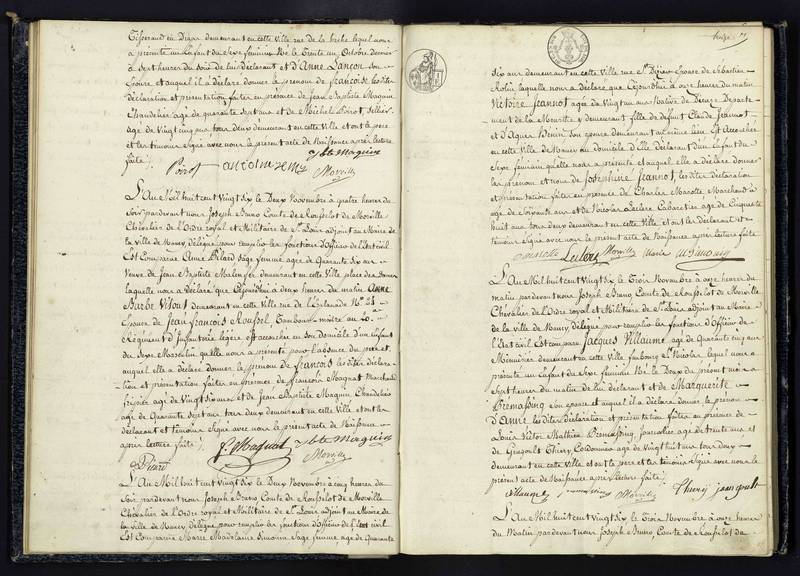 Tisserand en Drap demeurant en cette ville rue de la hache lequel nous
a présenté un Enfant du Sexe féminin Né le Trente un Octobre dernier
à Sept heures du Soir de lui déclarant et d'Anne Lançon son
Epouse et auquel il a déclaré donner le prenom de françoise les dites
déclaration et présentation faites en présence de Jean Baptiste Maquin
Chandelier agé de quarante sept ans et de Michel Poirot, Sellier
agé de Vingt cinq ans tous deux demeurant en cette Ville et ont le pere
et les témoins Signé avec nous le present acte de Naissance après lecture
faite /.
Poirot
Morville
L'An Mil huit cent Vingt Six le Deux Novembre à quatre heures du
Soir pardevant nous Joseph Bruno Comte de Rousselot de Morville
Chevalier de l'Ordre royal et Militaire de St Louis adjoint au Maire de
la Ville de Nancy délégué pour remplir les fonctions d'Officier de l'état civil
Est Comparue Anne Didard Sage femme agée de Quarante Six ans
Veuve de Jean Baptiste demeurant en cette Ville place des Dames
laquelle nous a déclaré que Cejourd'hui à deux heures du matin Anne
Barbe Visout demeurant en cette Ville rue de l'Esplanade No 21
Epouse de Jean françois Roussel Tambour maitre au 20e
Régiment d'Infanterie légère est accouchée en son domicile d'un enfant
du Sexe Masculin qu'elle nous a présenté pour l'absence du pere et
auquel elle a déclaré donner le prenom de françois les dites déclara-
tion et présentation faites en présence de françois Magnat Marchand
fripier agé de Vingt Six ans et de Jean Baptiste Maquin Chandelier
agé de Quarante Sept ans tous deux demeurant en cette Ville et ont les
déclarant et témoins Signé avec nous le present acte de Naissance
après lecture faite /.
f. Magnat
Morville
Didard
L'An Mil huit cent Vingt Six le Deux Novembre à cinq heures du
Soir pardevant nous Joseph Bruno Comte de Rousselot de Morville
Chevalier de l'Ordre royal et Militaire de St Louis adjoint au Maire de
la Ville de Nancy délégué pour remplir les fonctions d'Officier de l'état civil
Est Comparue Marie Madelaine Simonin Sage femme, agée de Quarante
Six ans demeurant en cette Ville rue St Dizier Epouse de Sébastien
laquelle nous a déclaré que Cejourd'hui à onze heures du matin
Victoire Jeannot agée de Vingt un ans Native de Departe-
ment de la Meurthe y demeurant fille de défunt Claude Jeannot
et d'Agnès Benin son epouse demeurant au même lieu Est Accouchée
en cette Ville de Nancy au domicile d'Elle déclarant d'un Enfant du
Sexe féminin qu'elle nous a présenté et auquel elle a déclaré donner
les prenom et nom de Josephine Jeannot, les dites déclaration
et présentation faites en présence de Charles Marotte Marchand
agé de Soixante ans et de Nicolas Leclerc Cabaretier agé de Cinquante
huit ans tous deux demeurant en cette Ville et ont les déclarant et
témoins Signé avec nous le present acte de Naissance après lecture faite
marotte Leclerc Morville Marie m Simonin
L'An Mil huit cent Vingt Six le Trois Novembre à onze heures du
matin pardevant nous Joseph Bruno Comte de Rousselot de Morville
Chevalier de l'Ordre royal et Militaire de St Louis adjoint au Maire
de la Ville de Nancy délégué pour remplir les fonctions d'Officier de
l'état civil Est comparu Jacques Villaume agé de Quarante cinq ans
Menuisier demeurant en cette Ville faubourg St Nicolas, lequel nous a
présenté un Enfant du Sexe féminin Né le Deux du présent mois à
Sept heures du matin de lui déclarant et de Marguerite
Bremassing son epouse et auquel il a déclaré donner le prenom
d'Anne les dites Déclaration et présentation faites en présence de
Louis Victor Mathieu Bremassing, Journalier agé de trente ans et
de Gengoult Thiery, Cordonnier agé de Vingt huit ans tous deux
demeurant en cette Ville et ont le pere et les témoins Signé avec nous le
présent acte de Naissance après lecture faite /.
villaume Morville Thiery jean goult
L'An Mil huit cent Vingt Six le Trois Novembre à onze heures
du Matin pardevant nous Joseph Bruno, Comte de Rousselot de